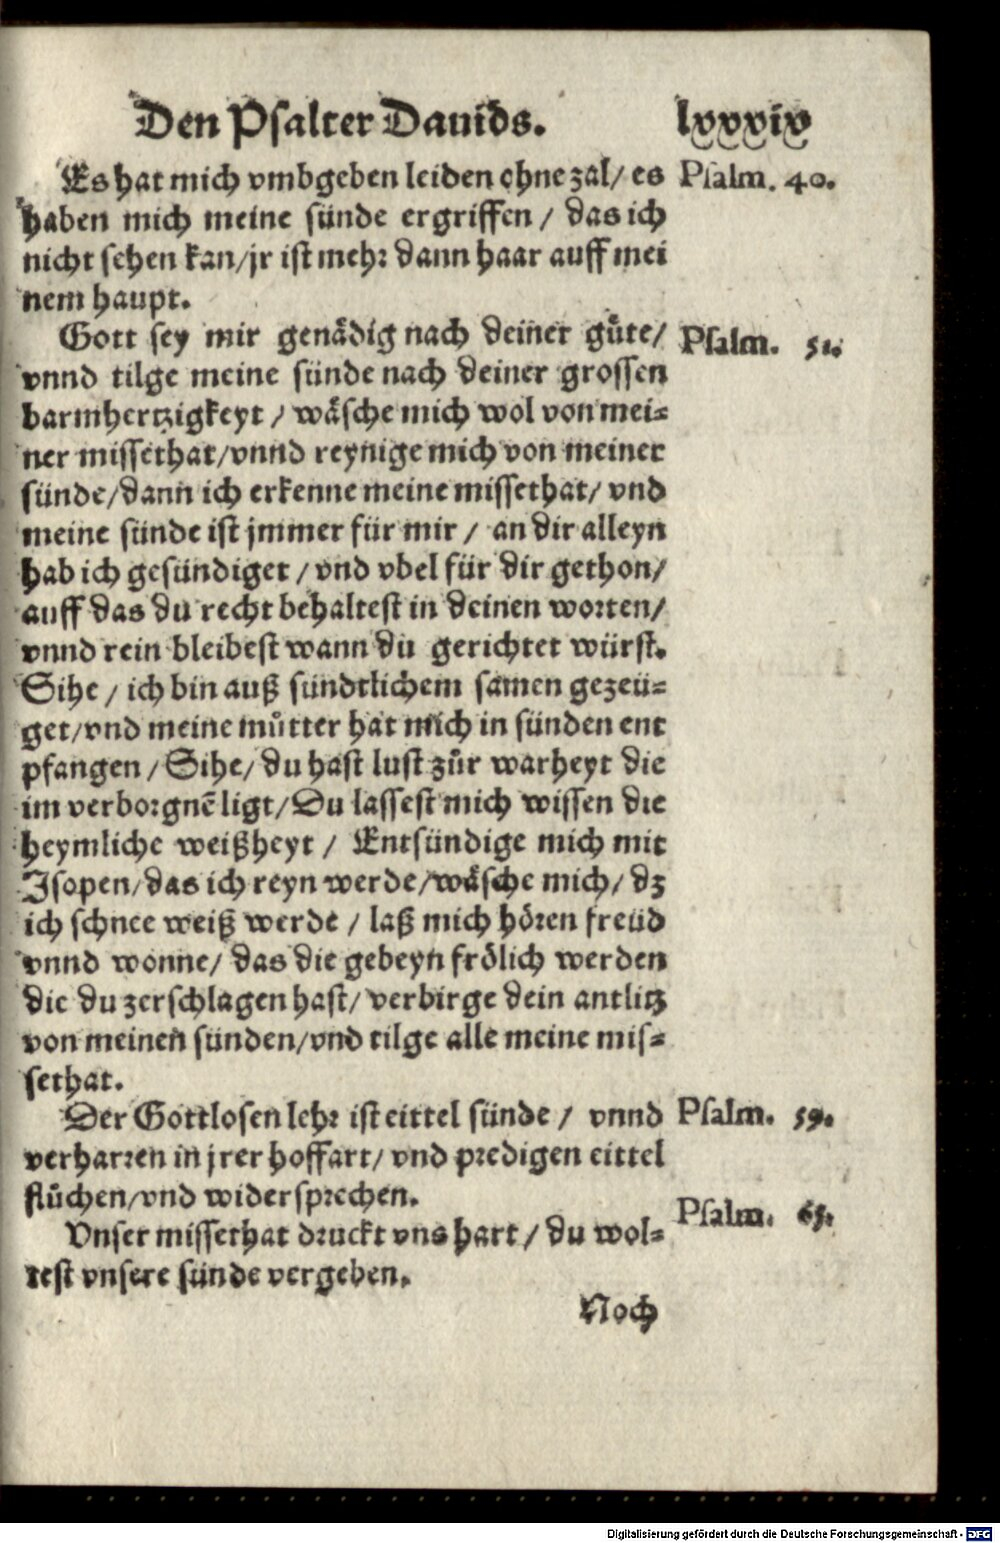 Den Psalter Dauids. lxxxix
Es hat mich vmbgeben leiden ohne zal/ es Psalm. 40.
haben mich meine sünde ergriffen / das ich
nicht sehen kan/jr ist mehr dann haar auff mei
nem haupt.
Gott sey mir genädig nach deiner gůte/ Psalm. 51.
vnnd tilge meine sünde nach deiner grossen
barmhertzigkeyt / wäsche mich wol von mei-
ner missethat/vnnd reynige mich von meiner
sünde/dann ich erkenne meine missethat/ vnd
meine sünde ist jmmer für mir / an dir alleyn
hab ich gesündiget /vnd vbel für dir gethon/
auff das du recht behaltest in deinen worten/
vnnd rein bleibest wann du gerichtet würst.
Sihe / ich bin auß sündtlichem samen gezeü-
get/vnd meine můtter hat mich in sünden ent
pfangen /Sihe/du hast lust zůr warheyt die
im verborgnē ligt/Du lassest mich wissen die
heymliche weißheyt / Entsündige mich mit
Isopen/das ich reyn werde/wäsche mich/ dz
ich schnee weiß werde / laß mich hören freüd
vnnd wonne/ das die gebeyn frölich werden
die du zerschlagen hast/ verbirge dein antlitz
von meinen sünden/vnd tilge alle meine mis-
sethat.
Der Gottlosen lehr ist eittel sünde / vnnd Psalm. 59.
verharren in jrer hoffart/ vnd predigen eittel
flůchen/vnd widersprechen.
Vnser missethat druckt vns hart / du wol- Psalm. 65.
test vnsere sünde vergeben.
Noch
Digitalisierung gefördert durch die Deutsche Forschungsgemeinschaft - DFG